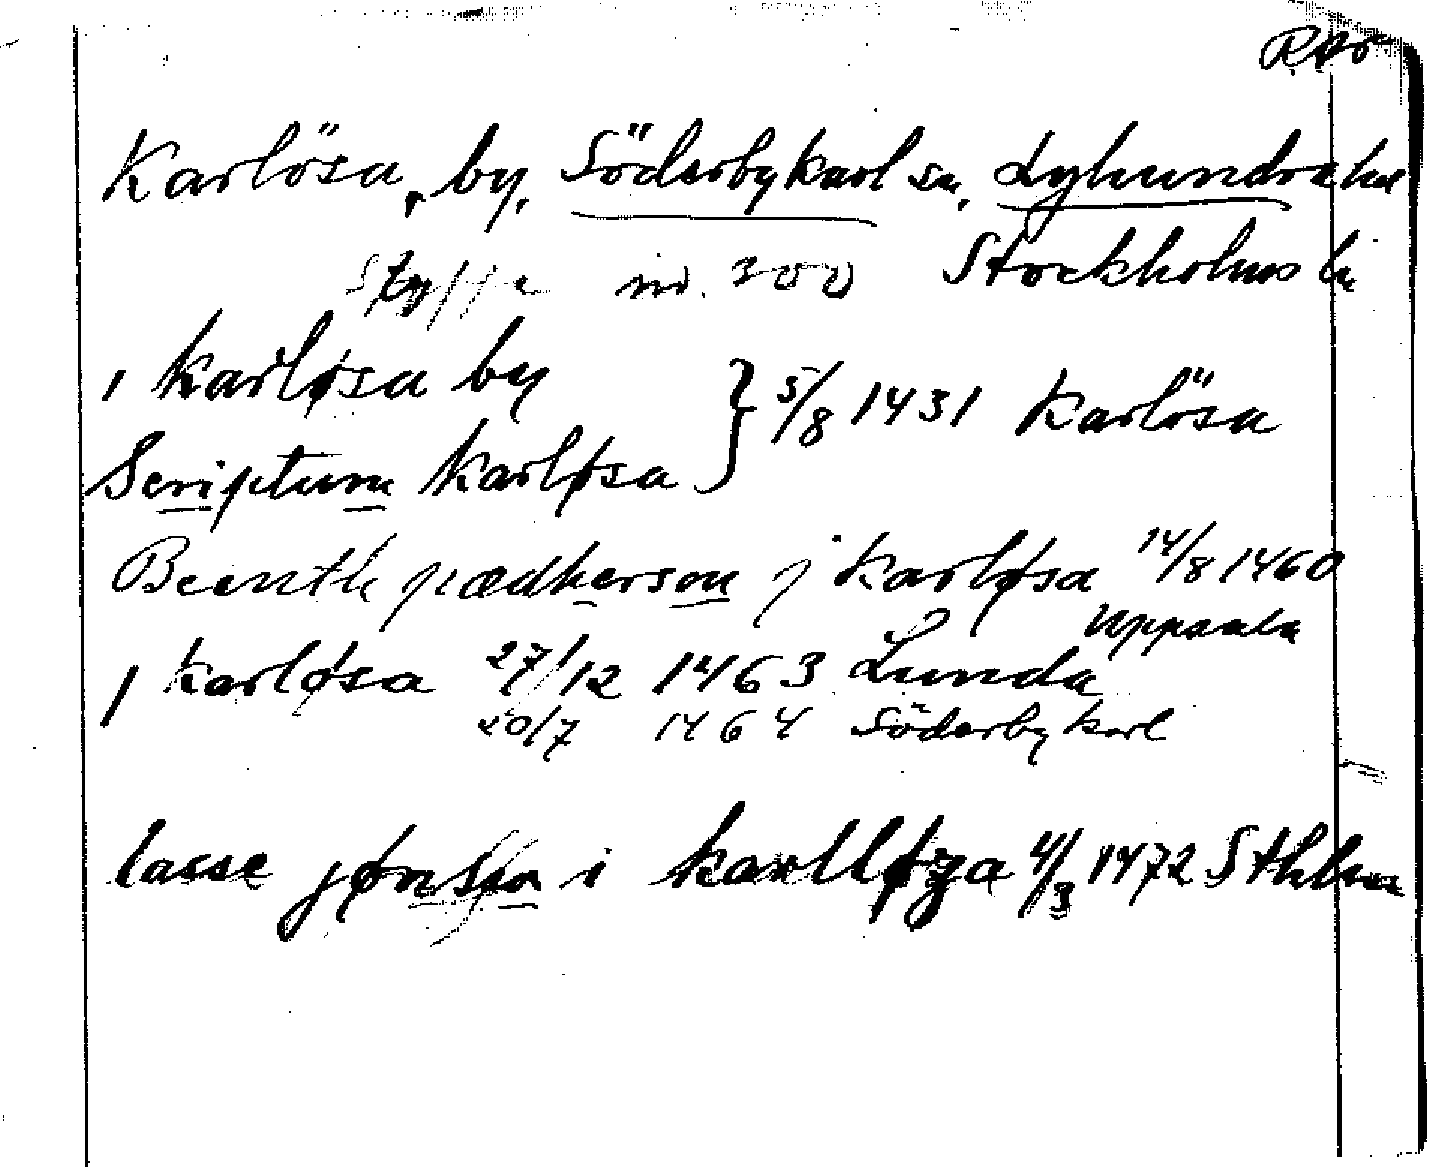 RAö
Karlösa, by, Söderbykarl sn, Lyhundra hd
Styffe nr. 300 Stockholms län
i karløsa by
Scriptum karløsa } 5/8 1431 Karlösa
Beenth pædherson j karløsa 14/8 1460
Uppsala
j karløsa 27/12 1463 Lunda
20/7 1464 Söderbykarl
lasse jønsson i karlløza 4/3 1472 Sthlm